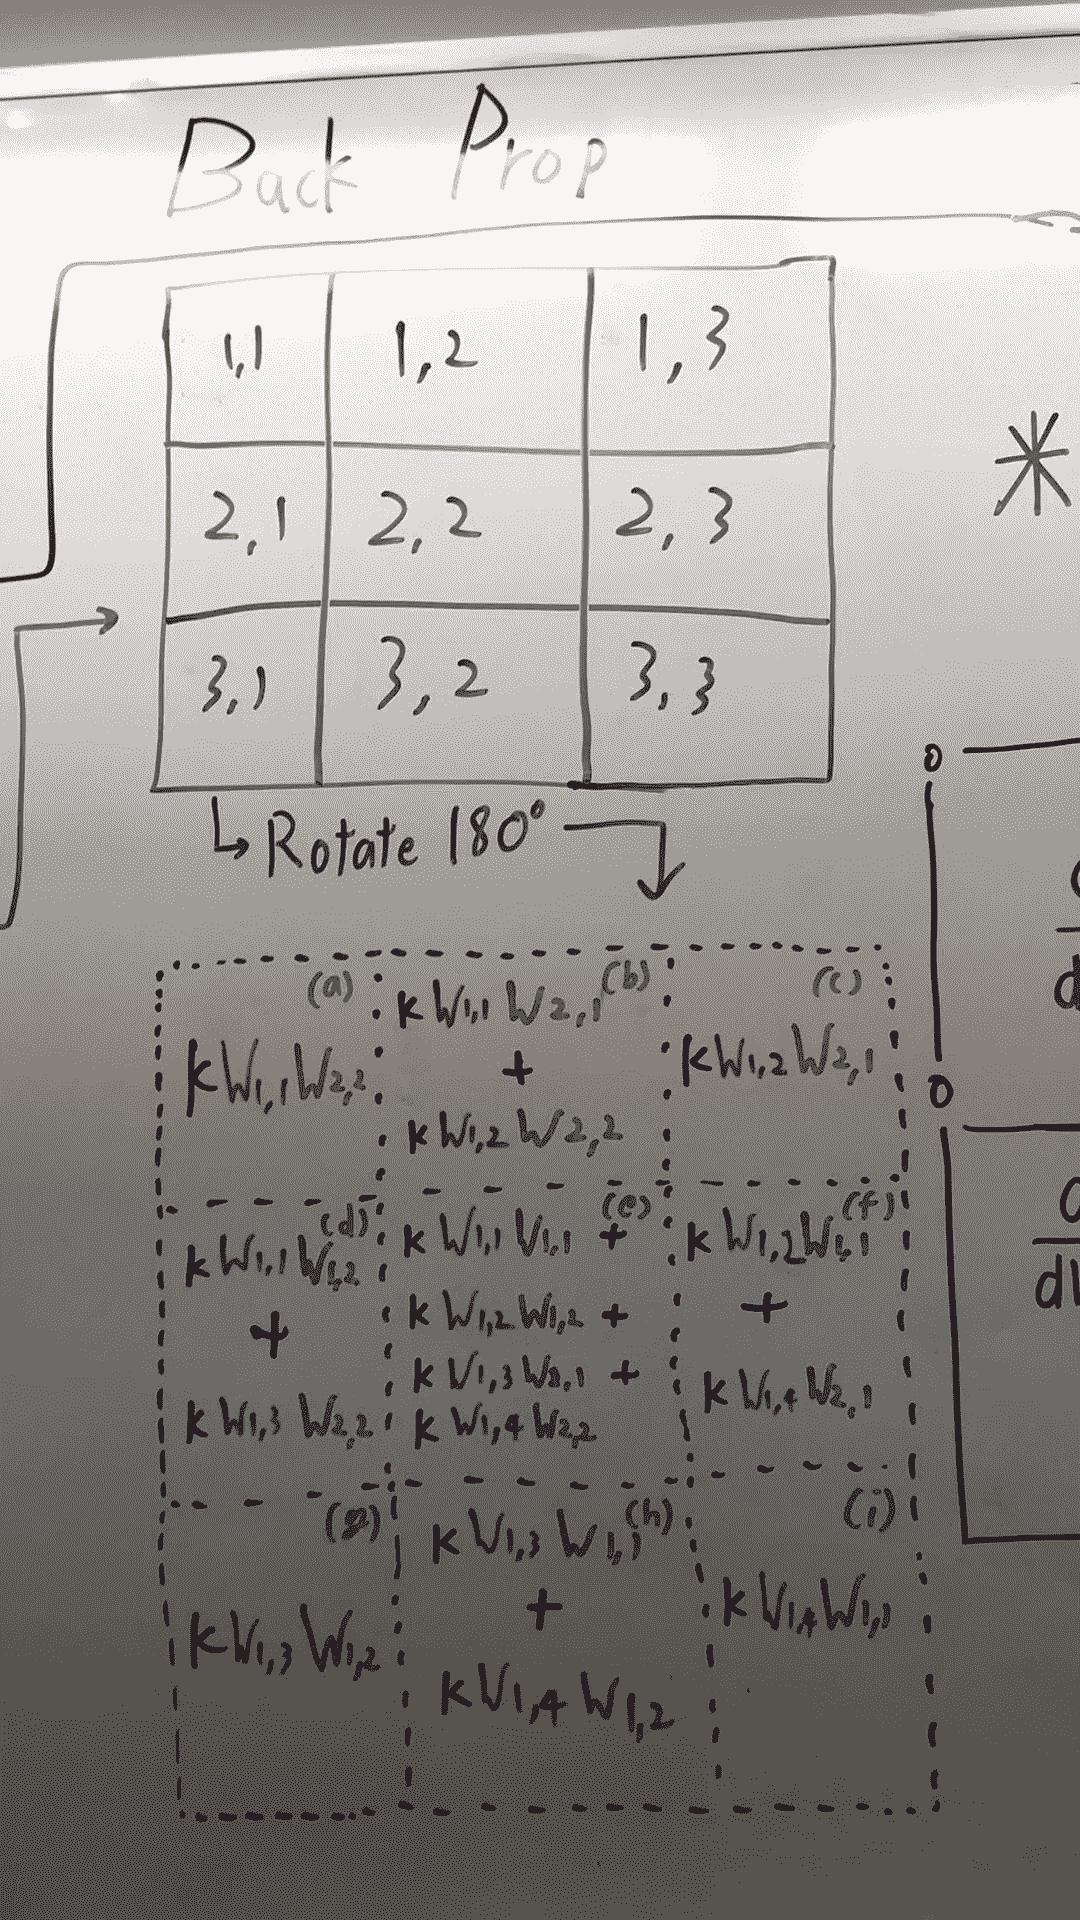 Back Prop
1,1 1,2 1,3
2,1 2,2 2,3
3,1 3,2 3,3
*
Rotate 180°
(a)
KW1,1W2,2
(b)
KW1,1 W2,1
+
KW1,2 W2,2
(c)
KW1,2W2,1
(d)
KW1,1W1,2
+
KW1,3 W2,2
(e)
KW1,1 W1,1 +
KW1,2W1,2 +
KW1,3W2,1 +
KW1,4W2,2
(f)
KW1,2W1,1
+
KW1,4 W2,1
(g)
KW1,3W1,2
(h)
KW1,3 W1,1
+
KW1,4 W1,2
(i)
KW1,4W1,1
0
0